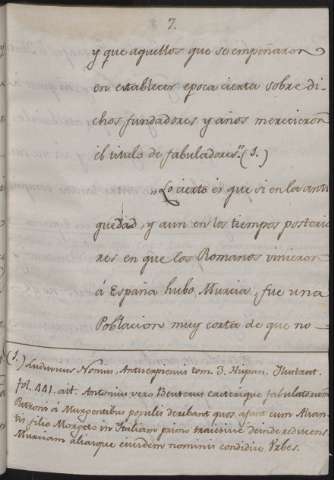 7.
y que aquellos que se empeñaron
en establecer epoca cierta sobre di-
chos fundadores y años merecieron
él titulo de fabuladores." (1.)
"Lo cierto és que si en la anti-
guedad, y aun en los tiempos posterio-
res en que los Romanos vinieron
á España hubo Murcia, fue una
Poblacion muy corta de que no-
(1.) Ludovicus Nonius Antuerpiensis tom. 3. Hispan. Illustrat.
fol. 441. ait. Antonius vero Beuterus caeterique fabulatorum
Patroni á Murgentibus populis deducunt quos ajunt cum
filio Morgete in Italiam prius traiecisse deinde reduces
Murciam aliasque eiusdem nominis condidisse Urbes.